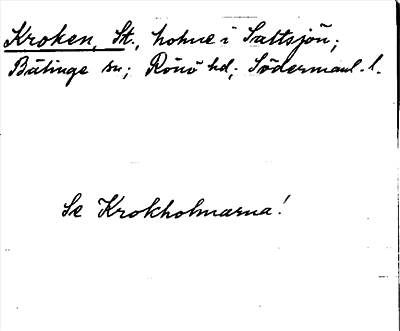 Kroken, St., holme i Saltsjön;
Bälinge sn; Rönö hd; Södermanl. l.
Se Krokholmarna!